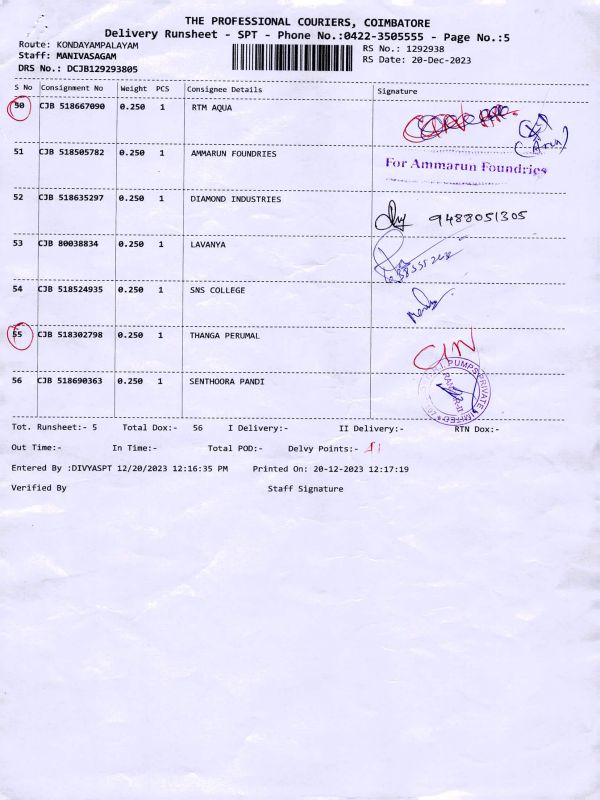 THE PROFESSIONAL COURIERS, COIMBATORE
Delivery Runsheet - SPT - Phone No.:0422-3505555 - Page No.:5
Route: KONDAYAMPALAYAM
RS No.: 1292938
Staff: MANIVASAGAM
RS Date: 20-Dec-2023
DRS No.: DCJB129293805
S No Consignment No Weight PCS Consignee Details Signature
50 CJB 518667090 0.250 1 RTM AQUA
51 CJB 518505782 0.250 1 AMMARUN FOUNDRIES
For Ammarun Foundries
52 CJB 518635297 0.250 1 DIAMOND INDUSTRIES
9488051305
53 CJB 80038834 0.250 1 LAVANYA
54 CJB 518524935 0.250 1 SNS COLLEGE
55 CJB 518302798 0.250 1 THANGA PERUMAL
56 CJB 518690363 0.250 1 SENTHOORA PANDI
PUMPS PRIVATE LIMITED
Tot. Runsheet:- 5 Total Dox:- 56 I Delivery:- II Delivery:- RTN Dox:-
Out Time:- In Time:- Total POD:- Delvy Points:-
Entered By :DIVYASPT 12/20/2023 12:16:35 PM Printed On: 20-12-2023 12:17:19
Verified By Staff Signature